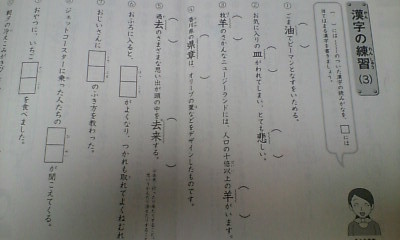 漢字の練習 (3)
一には、――のついた漢字の読みがなを、□には
当てはまる漢字を書きましょう。
① ごま油でピーマンとなすをいためる。
② お気に入りの皿がわれてしまい、とても悲しい。
③ 牧羊のさかんなニュージーランドには、人口の十倍以上の羊がいます。
④ 香川県の県章は、オリーブの葉などをデザインしたものです。
⑤ 過去のさまざまな思い出が頭の中を去来する。
⑥ おふろに入ると、がよくなり、つかれも取れてよくねむれ
⑦ おじいさんにのふき方を教わった。
⑧ ジェットコースターに乗った人たちのが聞こえてくる。
⑨ おやつに、いちごを食べました。